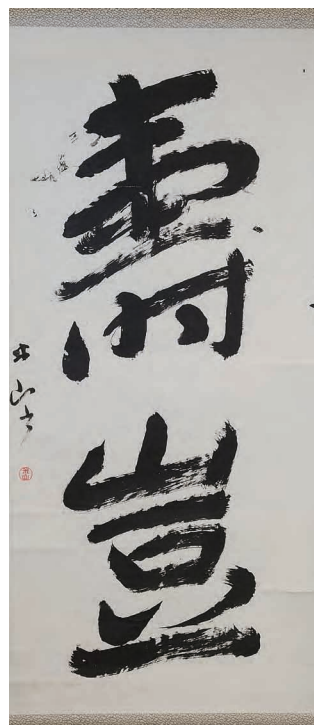 壽豈
山書